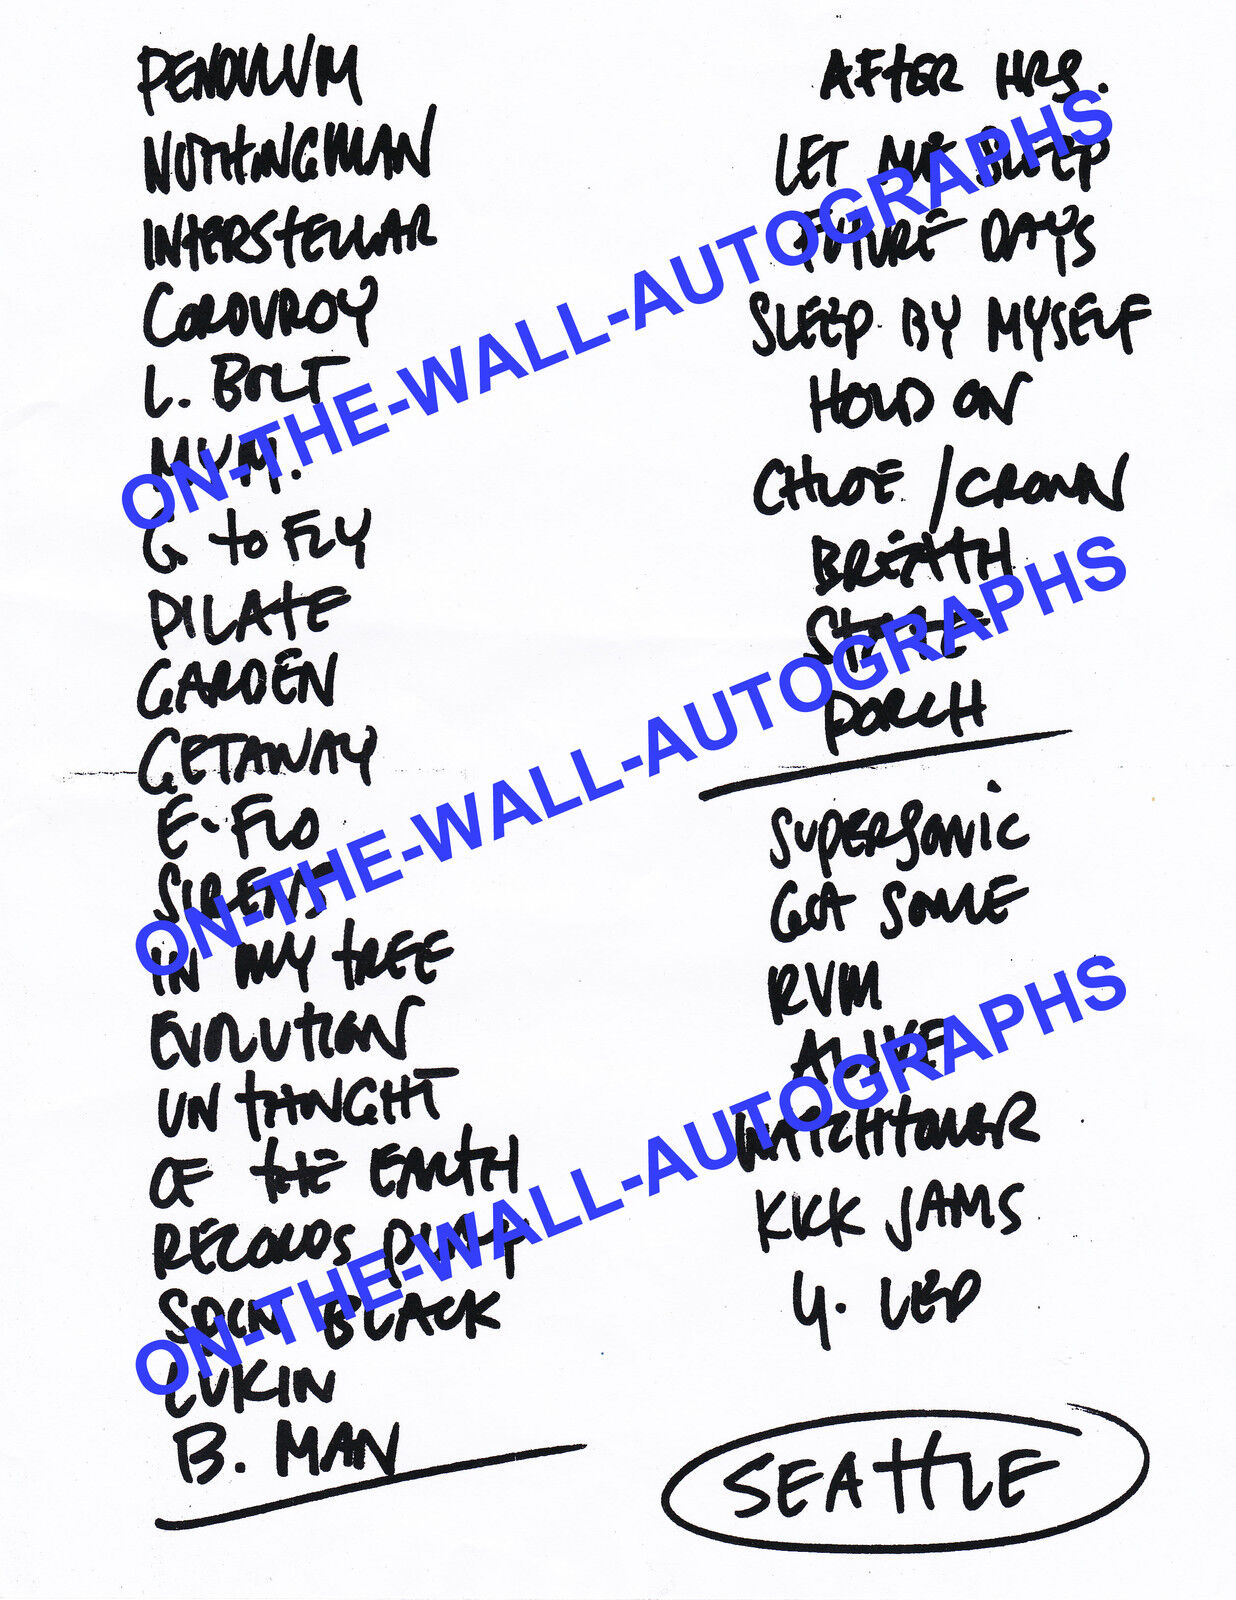 PENDULUM
NOTHINGMAN
INTERSTELLAR
CORDUROY
L. BOLT
M.Y.M.
G to FLY
PILATE
GARDEN
GETAWAY
E-FLO
SIRENS
IN MY TREE
EVOLUTION
UNTHINGHT
OF THE EARTH
RECORDS PLAY
SPIN BLACK
LUKIN
B. MAN
AFTER HRS.
LET ME SLEEP
FUTURE DAYS
SLEEP BY MYSELF
HOLD ON
CHLOE / CROWN
BREATH
STATE
PORCH
SUPERSONIC
GOT SOME
RVM
ALIVE
WATCHTOWER
KICK JAMS
Y. LED
SEATTLE
ON-THE-WALL-AUTOGRAPHS
ON-THE-WALL-AUTOGRAPHS
ON-THE-WALL-AUTOGRAPHS